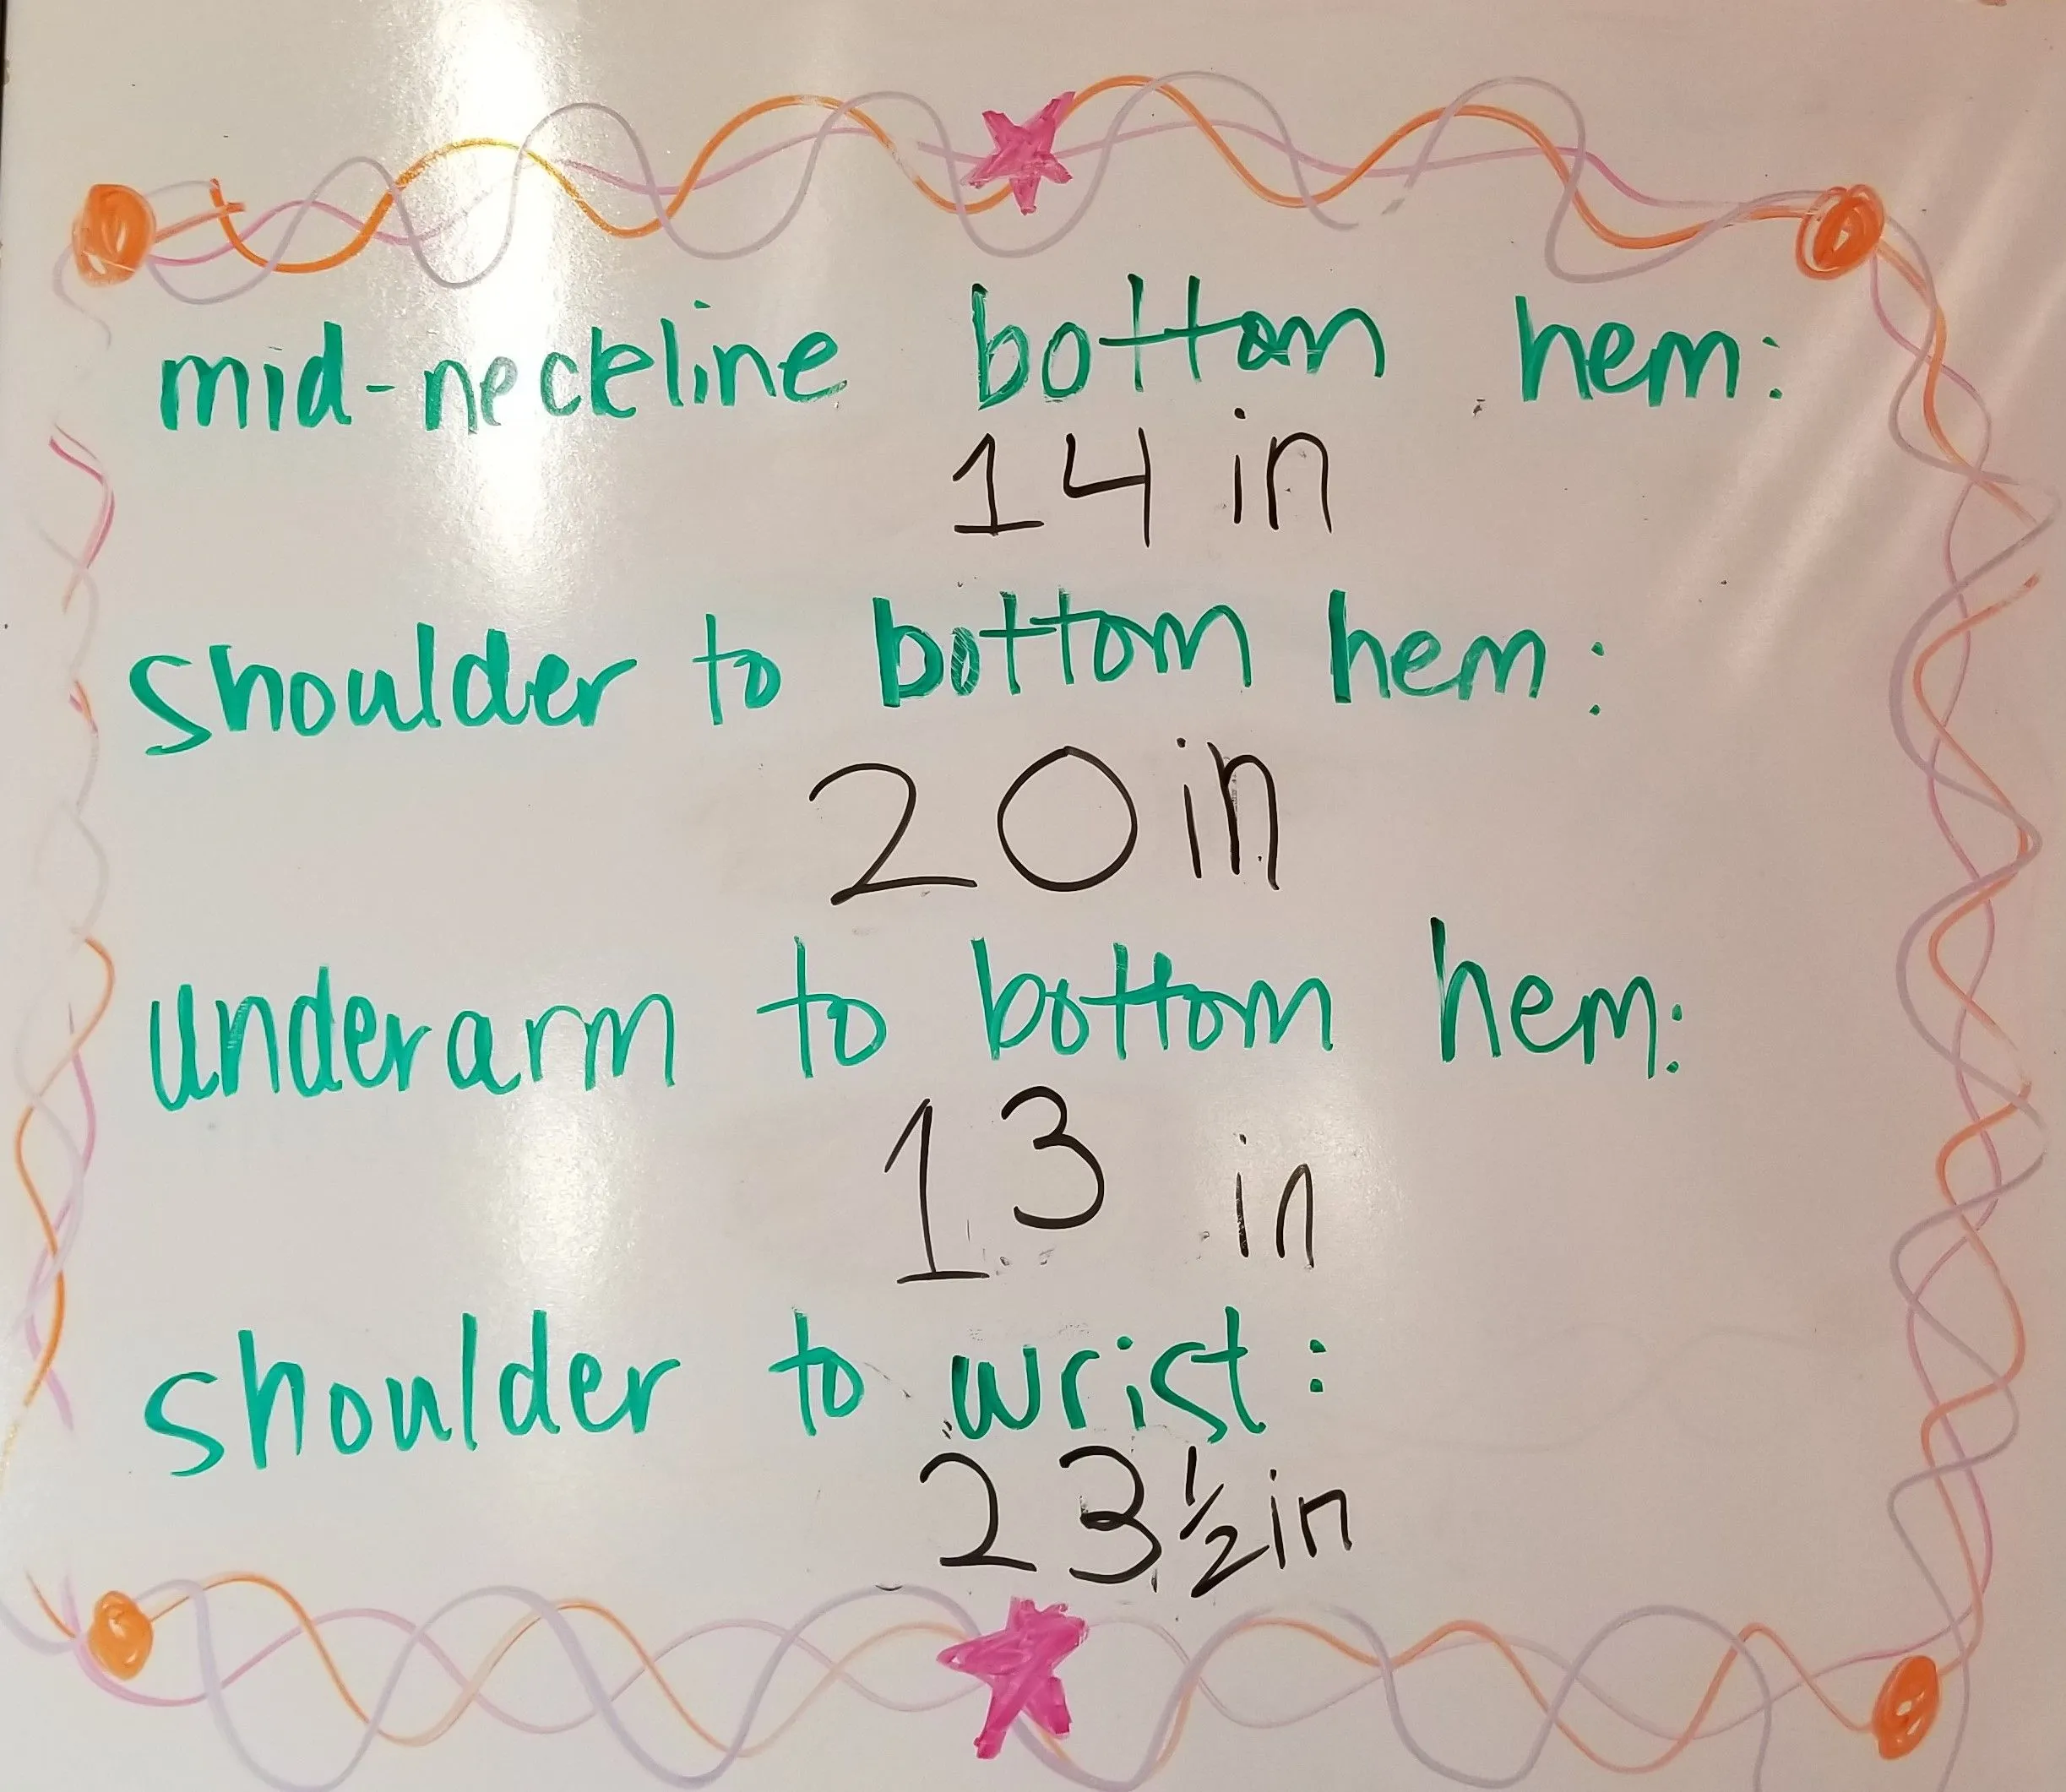 mid-neckline bottom hem:
14 in
shoulder to bottom hem:
20 in
underarm to bottom hem:
13 in
shoulder to wrist:
23 ½ in